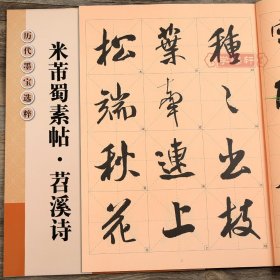 历代墨宝选粹
米芾蜀素帖·苕溪诗
種〻出枝
葉牽連上
松端秋花